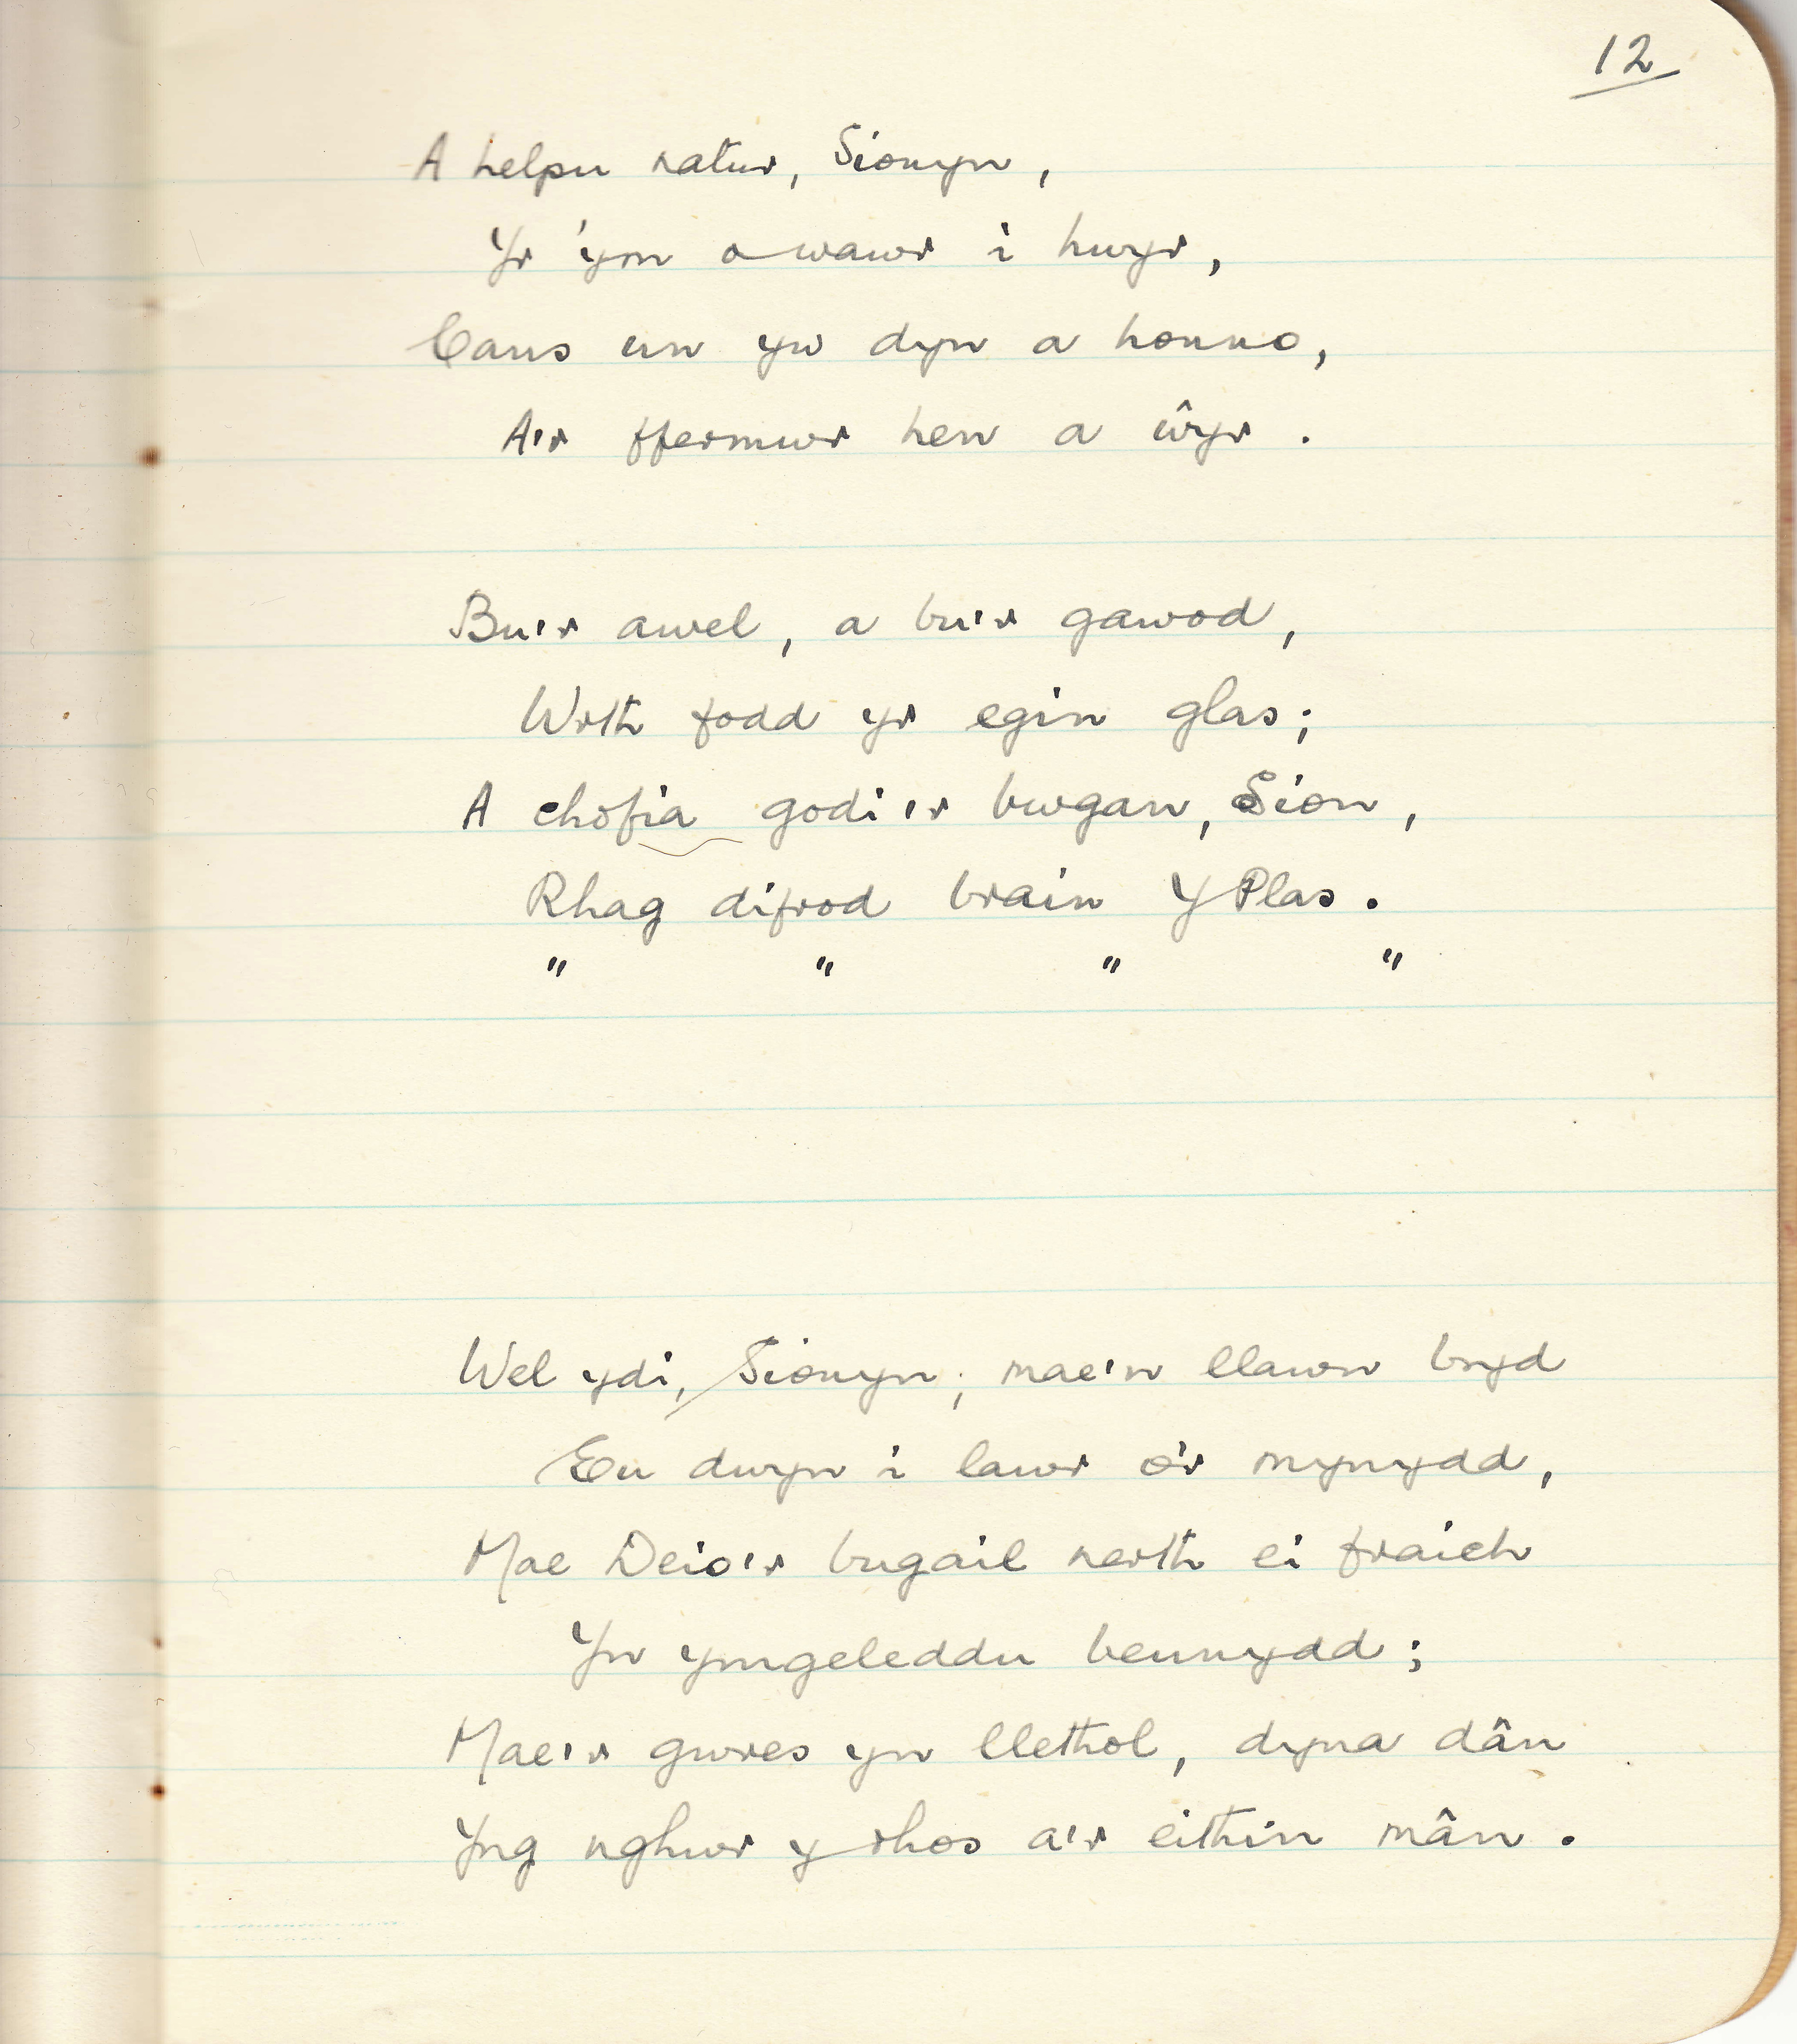 12
A helpu natur, Sionyn,
Yr 'ym o wawr i hwyr,
Cans un yw dyn a honno,
A'r ffermwr hen a ŵyr.
Bu'r awel, a bu'r gawod,
Wrth fodd yr egin glas;
A chofia godi'r bwgan, Sion,
Rhag difrod brain Y Plas.
" " " "
Wel ydi, Sionyn, mae'n llawn bryd
Eu dwyn i lawr o'r mynydd,
Mae Deio'r bugail nerth ei fraich
Yn ymgeleddu beunydd;
Mae'r gwres yn llethol, dyna dân
Yng nghwr y rhos a'r eithin mân.